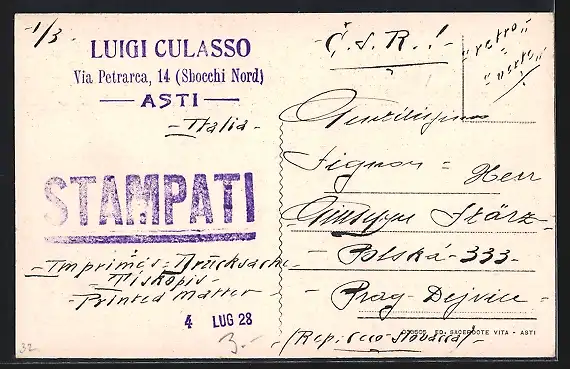 -1/3-
LUIGI CULASSO
Via Petrarca, 14 (Sbocchi Nord)
— ASTI —
-Italia-
STAMPATI
-Imprimés-Drucksache-
-Tiskopis-
-Printed Matter-
4 LUG 28
3.-
32
Č.S.R.!
"retro"
"verto"
Gentilissimo
Signor = Herr
Giuseppe Stärz-
-Polská-333-
-Prag-Dejvice-
ED. SACERDOTE VITA - ASTI
(Rep. ceco-slovacca)-